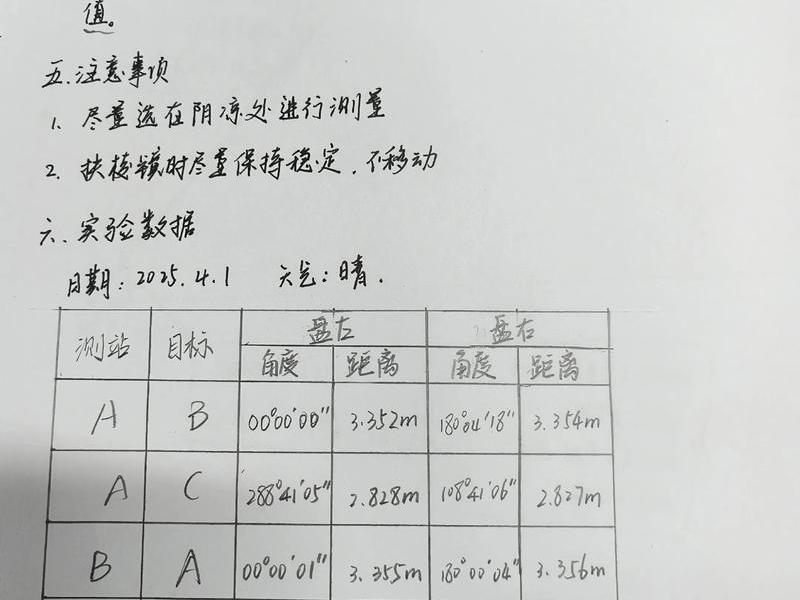 值。
五.注意事项
1. 尽量选在阴凉处进行测量
2. 扶棱镜时尽量保持稳定,不移动
六.实验数据
日期:2025.4.1 天气:晴.
测站 目标 盘左 盘右
角度 距离 角度 距离
A B 00°00'00" 3.352m 180°04'18" 3.354m
A C 288°41'05" 2.828m 108°41'06" 2.827m
B A 00°00'01" 3.355m 180°00'04" 3.356m